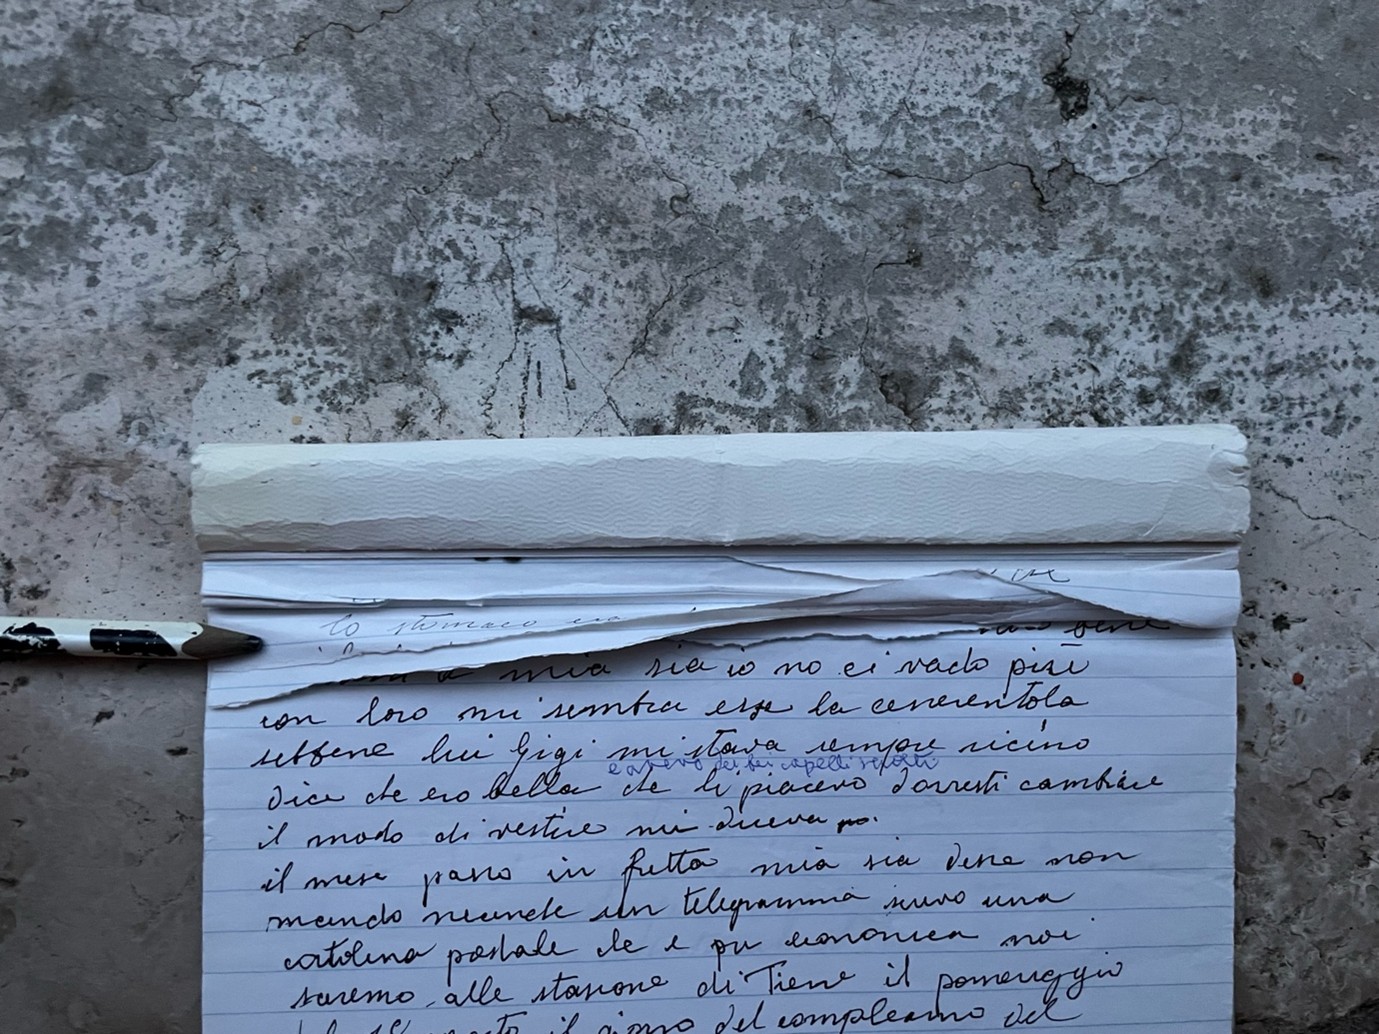 lo stomaco
bene
mia sia io no ci vado piú
con loro mi sembra esse la cenerentola
sebbene lui Gigi mi stava sempre vicino
e avevo dei bei capelli sciolti
dice che ero bella che li piacevo dovresti cambiare
il modo di vestire mi diceva
il mese passo in fretta mia sia disse non
mando neanche un telegramma scrivo una
cartolina postale che e piu economica noi
saremo alle stasione di Tiene il pomeriggio
il giorno del compleanno del